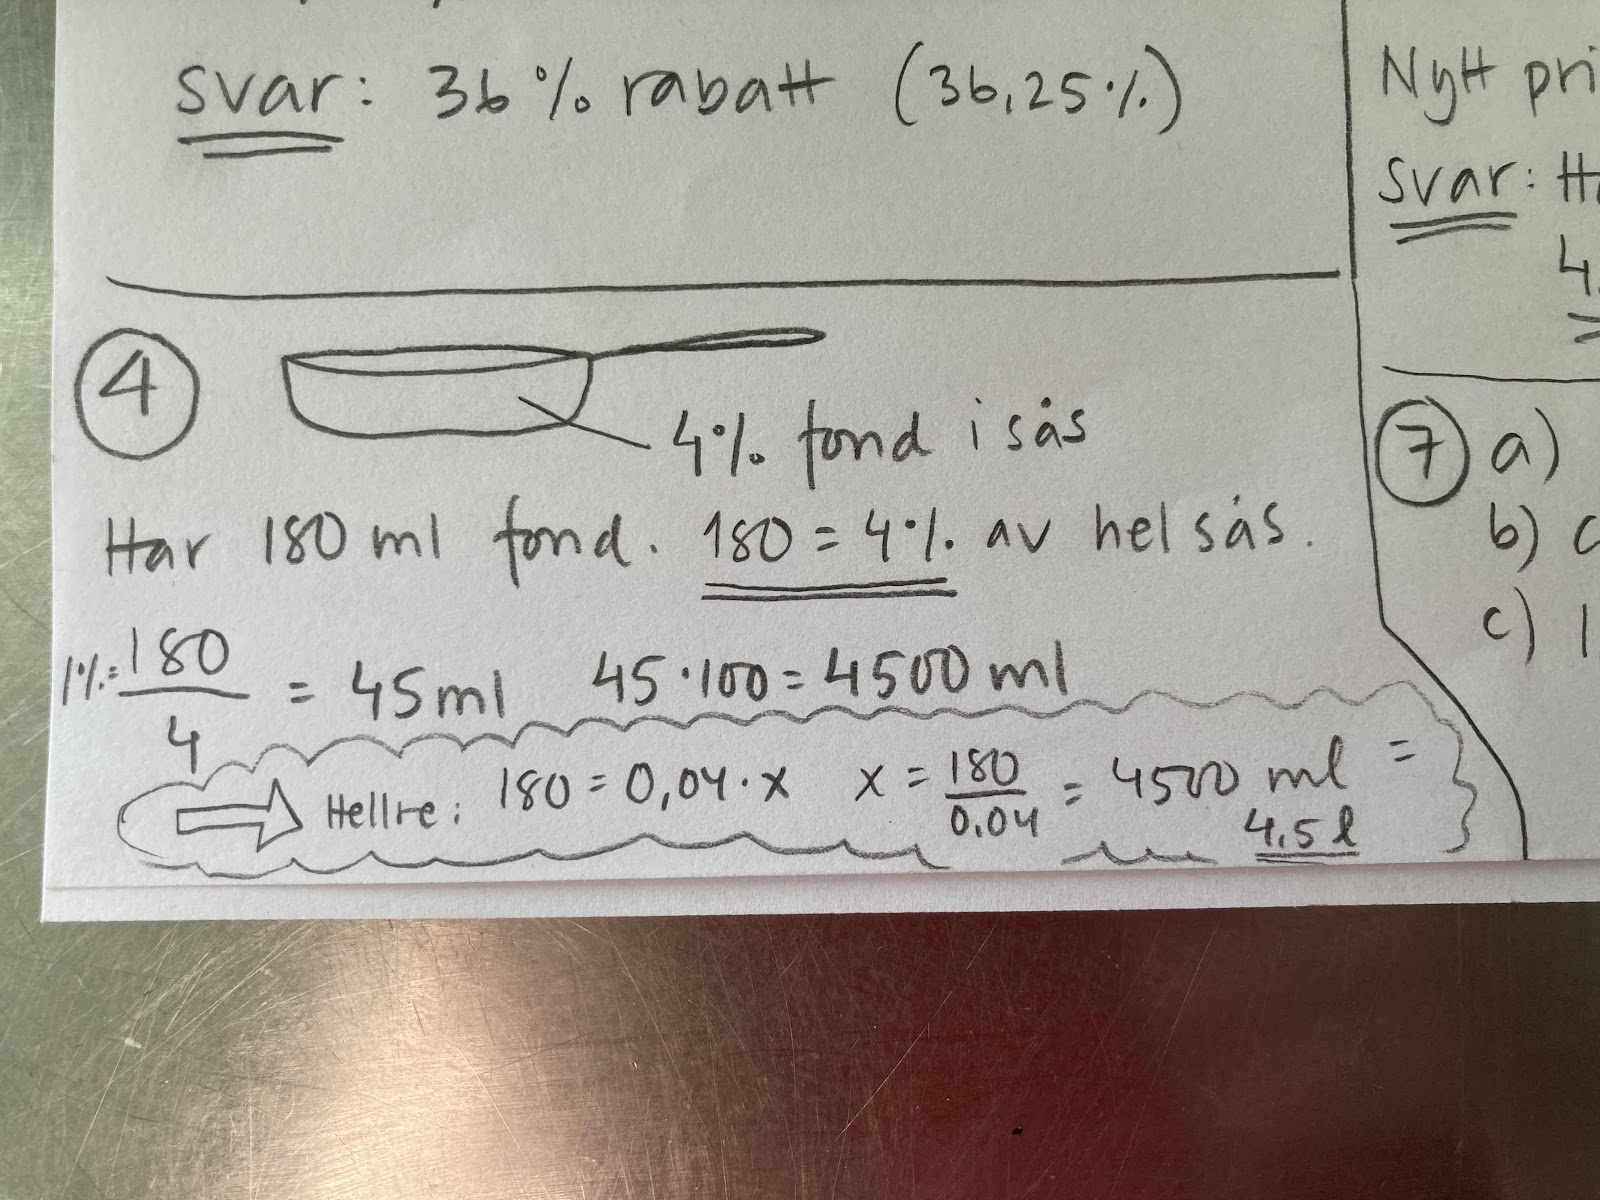 Svar: 36% rabatt (36,25%)
4
4% fond i sås
Har 180 ml fond. 180 = 4% av hel sås.
1%= 180/4 = 45 ml 45·100 = 4500 ml
Hellre: 180 = 0,04·x x = 180/0,04 = 4500 ml =
4,5 l
Nytt pri
Svar:
4
7 a)
b)
c)